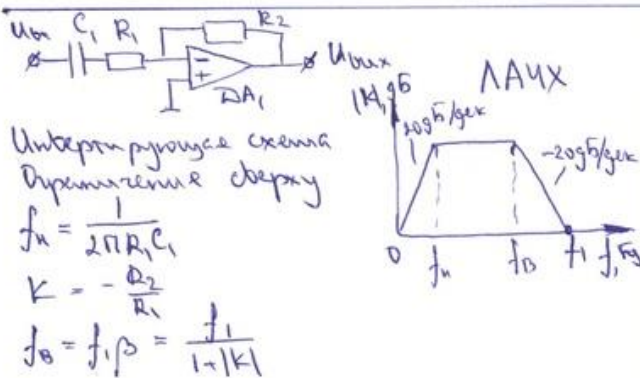 Uвх C₁ R₁ R₂
DA₁ Uвых
ЛАЧХ
|K|, дБ
20дБ/дек
-20дБ/дек
0 fн fв f₁ f, Гц
Инвертирующая схема
Ограничение сверху
fн = 1/(2πR₁C₁)
K = - R₂/R₁
fв = f₁β = f₁/(1+|K|)